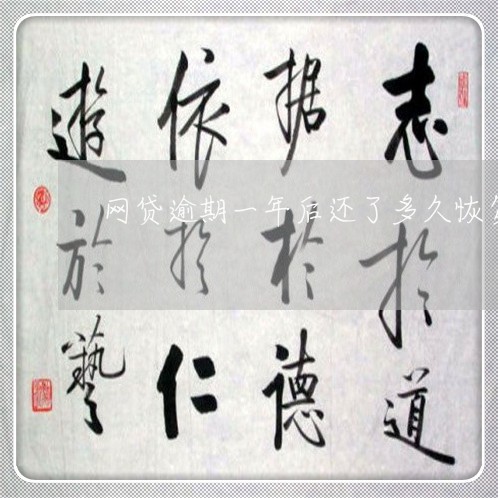 志於道
据於德
依於仁
遊於藝
网贷逾期一年后还了多久恢